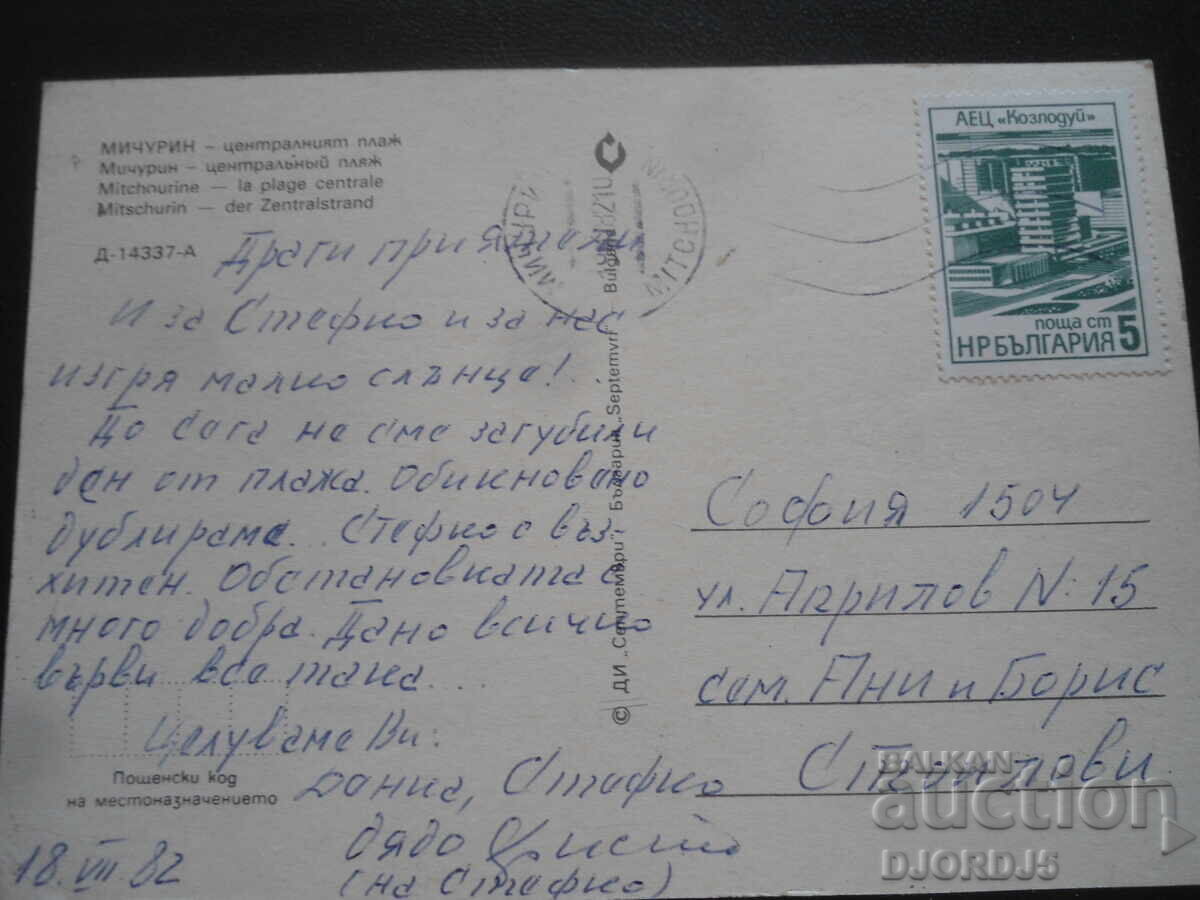 МИЧУРИН – централният плаж
Мичурин – центральный пляж
Mitchourine — la plage centrale
Mitschurin — der Zentralstrand
Д-14337-А
Драги приятели
И за Стефко и за нас
изгря малко слънце!
До сега не сме загубили
ден от плажа. Обикновено
дублираме. Стефко е въз-
хитен. Обстановката е
много добра. Дано всичко
върви все така...
Целуваме Ви:
Стефко
дядо Христо
(на Стефко)
18.VII.82
Пощенски код
на местоназначението
© ДИ „Септември“, България „Septemvri“ Bulgaria
МИЧУРИН
MITCHOURIN
АЕЦ «Козлодуй»
поща ст
НР БЪЛГАРИЯ 5
София 1504
ул. Априлов N: 15
сем. Ани и Борис
BALKAN
auction
DJORDJ5